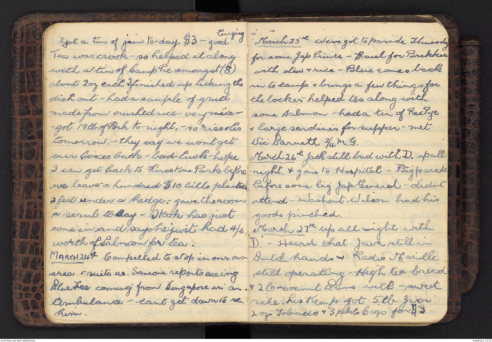 Got a tin of jam to-day $3 - good
Tea was crook - so helped it along
with a tin of Camp Pie amongst (8)
about 2oz each & finished up licking the
dish out - had a sample of gruel
made from crushed rice - very nice -
got 19lb of Pork to night, - so rissoles
tomorrow - they say we wont get
our boxes back - bad luck - hope
I can get back to
we leave a hundred $10 bills planted
2 feet under a hedge - gave the room
a scrub to day - Shook has just
come in and says he just had 4/6
worth of Salmon for tea.
MARCH 24th Compelled to stop in our own
area - suits us. Someone reports seeing
Blue Lee coming from Singapore in an
Ambulance - cant get down to see
him.
March 25th were got to parade Thursday
for some Jap Prince - Gruel for Breakker
with stew & rice - Blue comes back
in to camp & brings a few things for
the locker helped tea along with
some Salmon - had a tin of
& large sardines for supper - met
Vic Garnett 2/4 M.G.
March 26th still bad with D. up all
night, & gone to Hospital - Big parade
before some big Jap General - didnt
attend - Washout Wilson had his
goods pinched.
March 27th up all night with
D. - Heard that Java still in
Dutch hands & Radio Manilla
still operating - High tea bread
& 2 Coconut Buns with - sweet
rice, his Kemp got 5lb Jam
2 ozs Tobacco & 3 pkts Cigs for $3